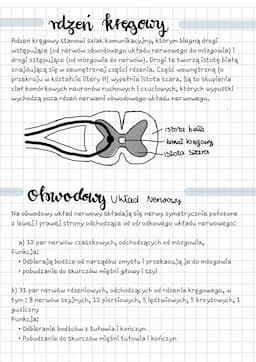 rdzeń kręgowy
Rdzeń kręgowy stanowi szlak komunikacyjny, którym biegną drogi
wstępujące (od nerwów obwodowego układu nerwowego do mózgowia) i
drogi zstępujące (od mózgowia do nerwów). Drogi te tworzą istotę białą
znajdującą się w zewnętrznej części rdzenia. Część wewnętrzną (o
przekroju w kształcie litery H) wypełnia istota szara. Są to skupienia
ciał komórkowych neuronów ruchowych i czuciowych, których wypustki
wychodzą poza rdzeń nerwami obwodowego układu nerwowego.
istota biała
kanał kręgowy
istota szara
Obwodowy układ nerwowy
Na obwodowy układ nerwowy składają się nerwy symetrycznie położone
z lewej i prawej strony odchodzące od ośrodkowego układu nerwowego:
a) 12 par nerwów czaszkowych, odchodzących od mózgowia,
Funkcja:
• Odbierają bodźce od narządów zmysłu i przekazują je do mózgowia
• pobudzanie do skurczów mięśni głowy i szyi
b) 31 par nerwów rdzeniowych, odchodzących od rdzenia kręgowego, w
tym : 8 nerwów szyjnych, 12 piersiowych, 5 lędźwiowych, 5 krzyżowych, 1
guziczny
Funkcja:
• Odbieranie bodźców z tułowia i kończyn
• Pobudzanie do skurczów mięśni tułowia i kończyn